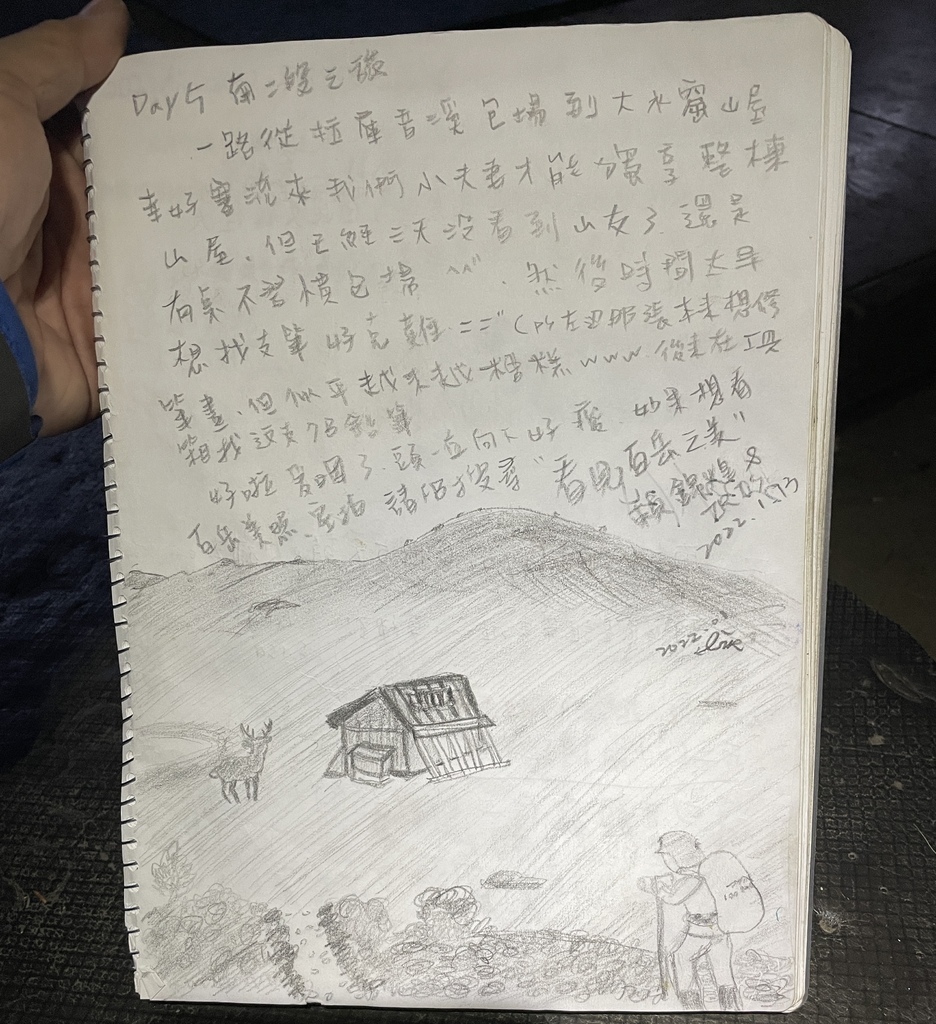 Day 5 南二段之旅
一路從拉庫音溪包場到大水窟山屋
幸好寒流來我們小夫妻才能獨享整棟
山屋、但已經三天沒看到山友了、還是
有點不習慣包場 ^^"、然後時間太早
想找支筆好克難 =="(ps左邊那張本來想修
筆畫、但似乎越來越糟糕 www、後來在工具
箱找這支鉛筆
好啦、頭一直向下好痠、如果想看
百岳美照、請搜尋"看見百岳之美"
賴錦
2022. 1
2022. 01
Love
100